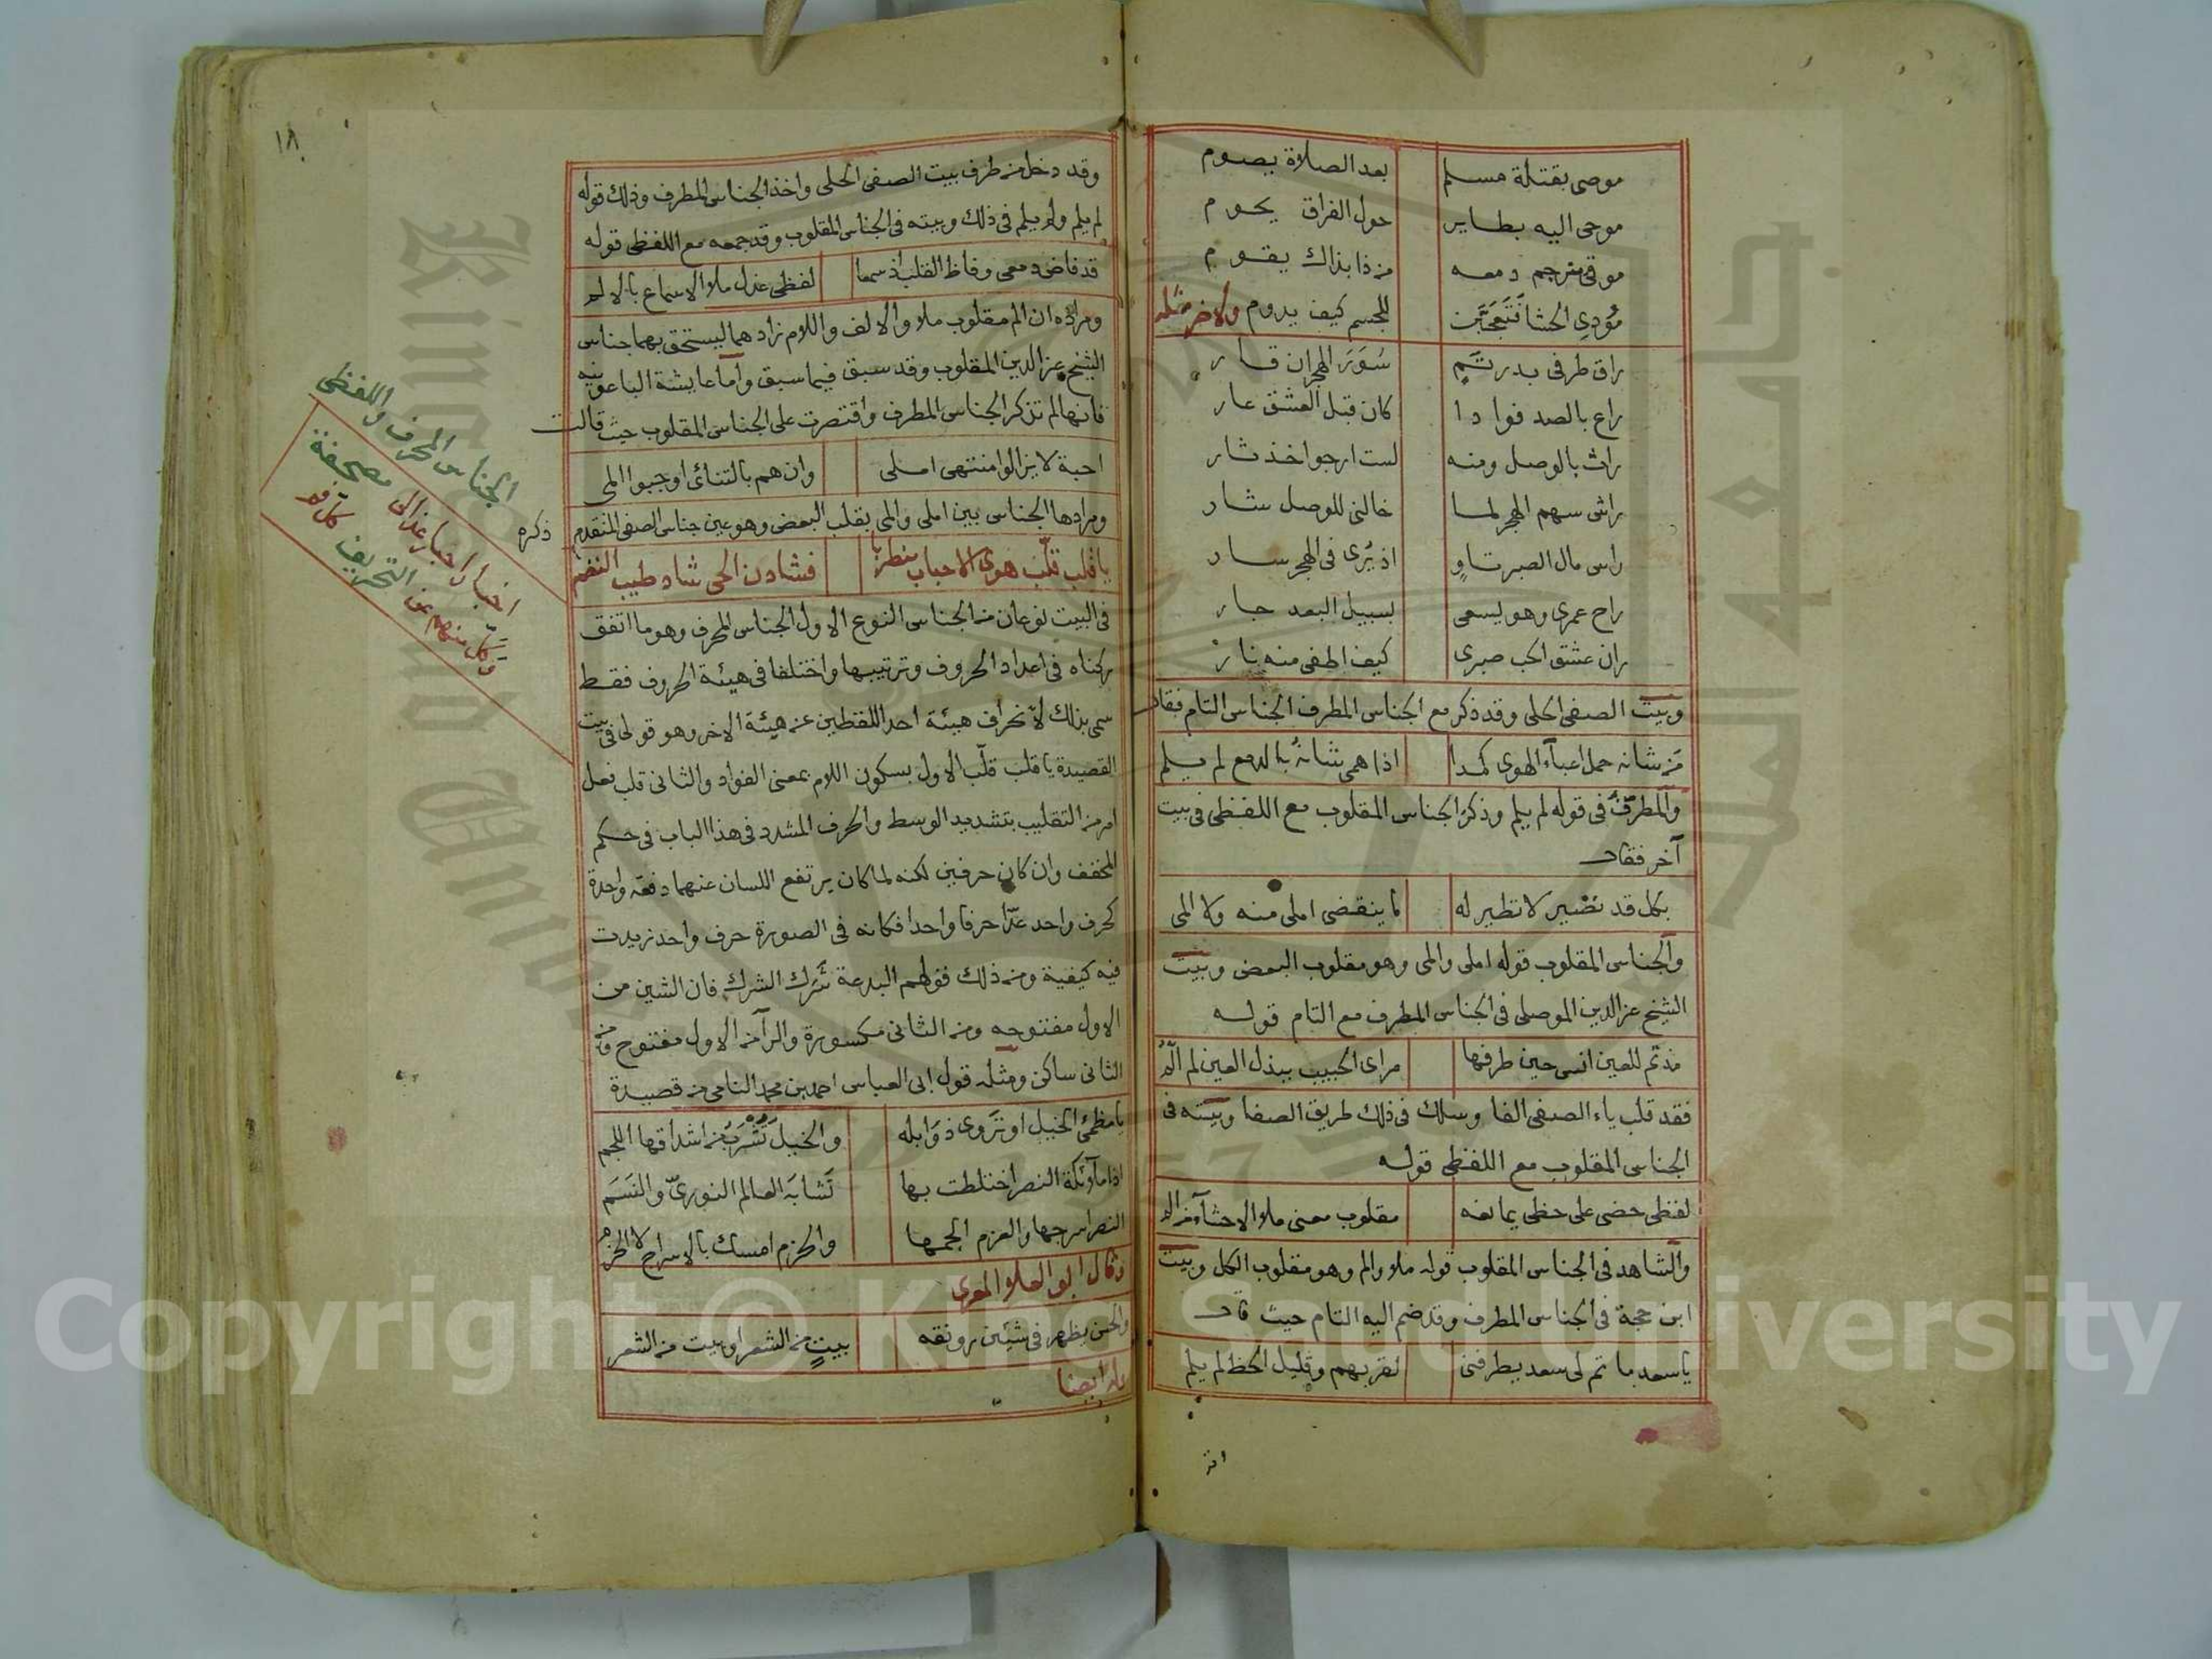 موصى بقتلة مسلم بعد الصلاة يصوم
موحى اليه بطاير حول الفراق يحوم
موقى مترجم دمعه من ذا بذاك يقوم
مؤدى الحشا فتعجبن للجسم كيف يدوم ولاخر مثله
راق طرفى بدر تم سور الهجران قار
راع بالصد فوادا كان قبل العشق عار
راث بالوصل ومنه لست ارجو اخذ ثار
راش سهم الهجر لما خالنى للوصل شار
راس مال الصبر تاو اذ يرى فى الهجر سار
راح عمرى وهو يسعى لسبيل البعد جار
ران عشق الحب صبرى كيف اطفى منه نار
وبيت الصفى الحلى وقد ذكر مع الجناس المطرف الجناس التام فقال
من شانه حمل اعباء الهوى كمدا اذا همى شانه بالدمع لم يلم
والمطرف فى قوله لم يلم وذكر الجناس المقلوب مع اللفظى فى بيت
آخر فقال
بكل قد نضير لا نظير له ما ينقضى املى منه ولا المى
والجناس المقلوب قوله املى والمى وهو مقلوب البعض وبيت
الشيخ عز الدين الموصلى فى الجناس المطرف مع التام قوله
مذ تم للعين انسى حين طرفها مراى الحبيب ببذل العين لم الم
فقد قلب ياء الصفى الفا وسلك فى ذلك طريق الصفا وبيته فى
الجناس المقلوب مع اللفظى قوله
لفظى حضى على حظى يمانعه مقلوب معنى ملا الاحشاء من الم
والشاهد فى الجناس المقلوب قوله ملا والم وهو مقلوب الكل وبيت
ابن حجة فى الجناس المطرف وقد ضم اليه التام حيث قال
ياسعد ما تم لى سعد يطرفنى لقربهم وقليل الحظ لم يلم
١٨
وقد دخل من طرف بيت الصفى الحلى واخذ الجناس المطرف وذلك قوله
لم يلم ولم يلم فى ذلك وبيته فى الجناس المقلوب وقد جمعه مع اللفظى قوله
قد فاض دمعى وفاظ القلب اذ سمعا لفظى عذل ملا الاسماع بالالم
ومراده ان الم مقلوب ملا والالف واللام زادهما ليستحق بهما جناس
الشيخ عز الدين المقلوب وقد سبق فيما سبق واما عايشة الباعونيه
فانها لم تذكر الجناس المطرف واقتصرت على الجناس المقلوب حيث قالت
احبة لا يزالوا منتهى املى وان هم بالتنائى اوجبوا المى
ومرادها الجناس بين املى والمى بقلب البعض وهو عين جناس الصفى المتقدم ذكره
يا قلب قلب هوى الاحباب مضطربا فشادن الحى شاد طيب النغم
فى البيت نوعان من الجناس النوع الاول الجناس المحرف وهو ما اتفق
ركناه فى اعداد الحروف وترتيبها واختلفا فى هيئة الحروف فقط
سمى بذلك لانحراف هيئة احد اللفظين عن هيئة الاخر وهو قولى فى بيت
القصيدة يا قلب قلب الاول بسكون اللام بمعنى الفواد والثانى قلب فعل
امر من التقليب بتشديد الوسط والحرف المشدد فى هذا الباب فى حكم
المخفف وان كان حرفين لكنه لما كان يرتفع اللسان عنهما دفعة واحدة
كحرف واحد عدا حرفا واحدا فكانه فى الصورة حرف واحد زيدت
فيه كيفية ومن ذلك قولهم البدعة شرك الشرك فان الشين من
الاول مفتوحه ومن الثانى مكسورة والرآ من الاول مفتوح ومن
الثانى ساكن ومثله قول ابى العباس احمد بن محمد النامى من قصيدة
يا مظمئ الخيل او تروى ذوابله والخيل تشرب من اشداقها اللجم
اذا ملائكة النصر اختلطت بها تشابه العالم النورى والنسم
النصر اسرجها والعزم الجمها والحزم امسك بالاسراج لا الحزم
وقال ابو العلا المعرى
والحسن يظهر فى شيئين رونقه بيت من الشعر او بيت من الشعر
وله ايضا
الجناس المحرف واللفظى
اخبار احبار عذالى مصحفة
وكل منهم عن التحريف
Copyright © King Saud University